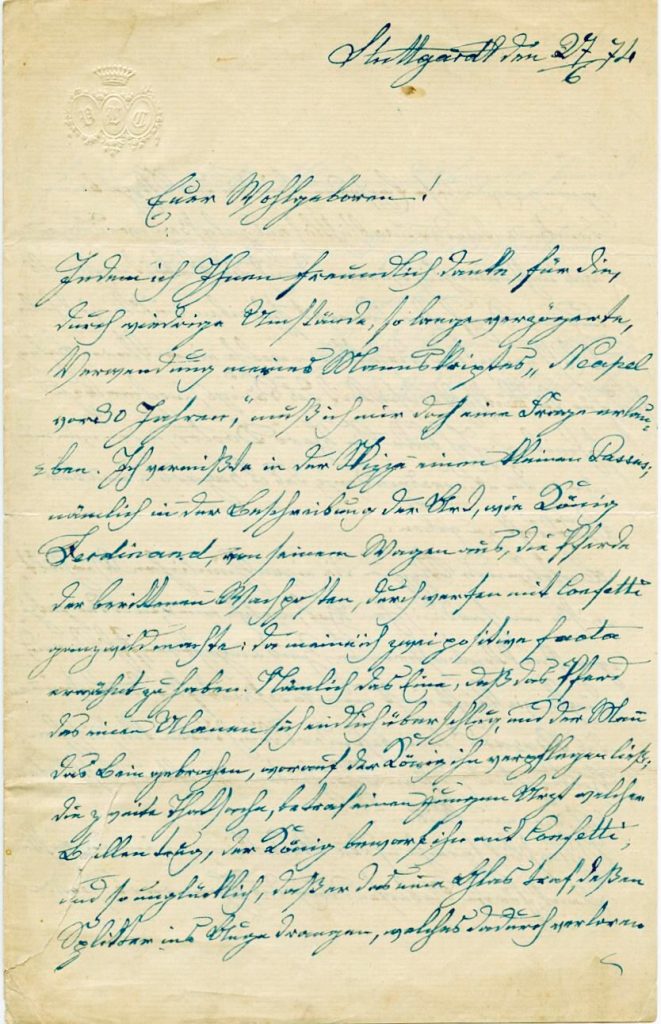 Stuttgardt den 27/6 74
Euer Wohlgeboren!
Indem ich Ihnen freundlich danke, für die,
durch widrige Umstände, so lange verzögerte,
Verwendung meines Manuskriptes „Neapel
vor 30 Jahren," muß ich mir doch eine Frage erlau-
ben. Ich vermißte in der Skizze einen kleinen Passus;
nämlich in der Beschreibung der Art, wie König
Ferdinand, von seinem Wagen aus, die Pferde
der berittenen Wachposten, durch werfen mit Confetti
ganz wild machte; da meine ich zwei positive facta
erwähnt zu haben. Nämlich das Eine, daß das Pferd
des einen Ulanen sich endlich überschlug und der Mann
das Bein gebrochen, worauf der König ihn verpflegen ließ;
die zweite Thatsache, betraf einen jungen Arzt welcher
Brillen trug, der König bewarf ihn mit Confetti,
und so unglücklich, daß er das eine Glas traf, deßen
Splitter ins Auge drangen, welches dadurch verloren